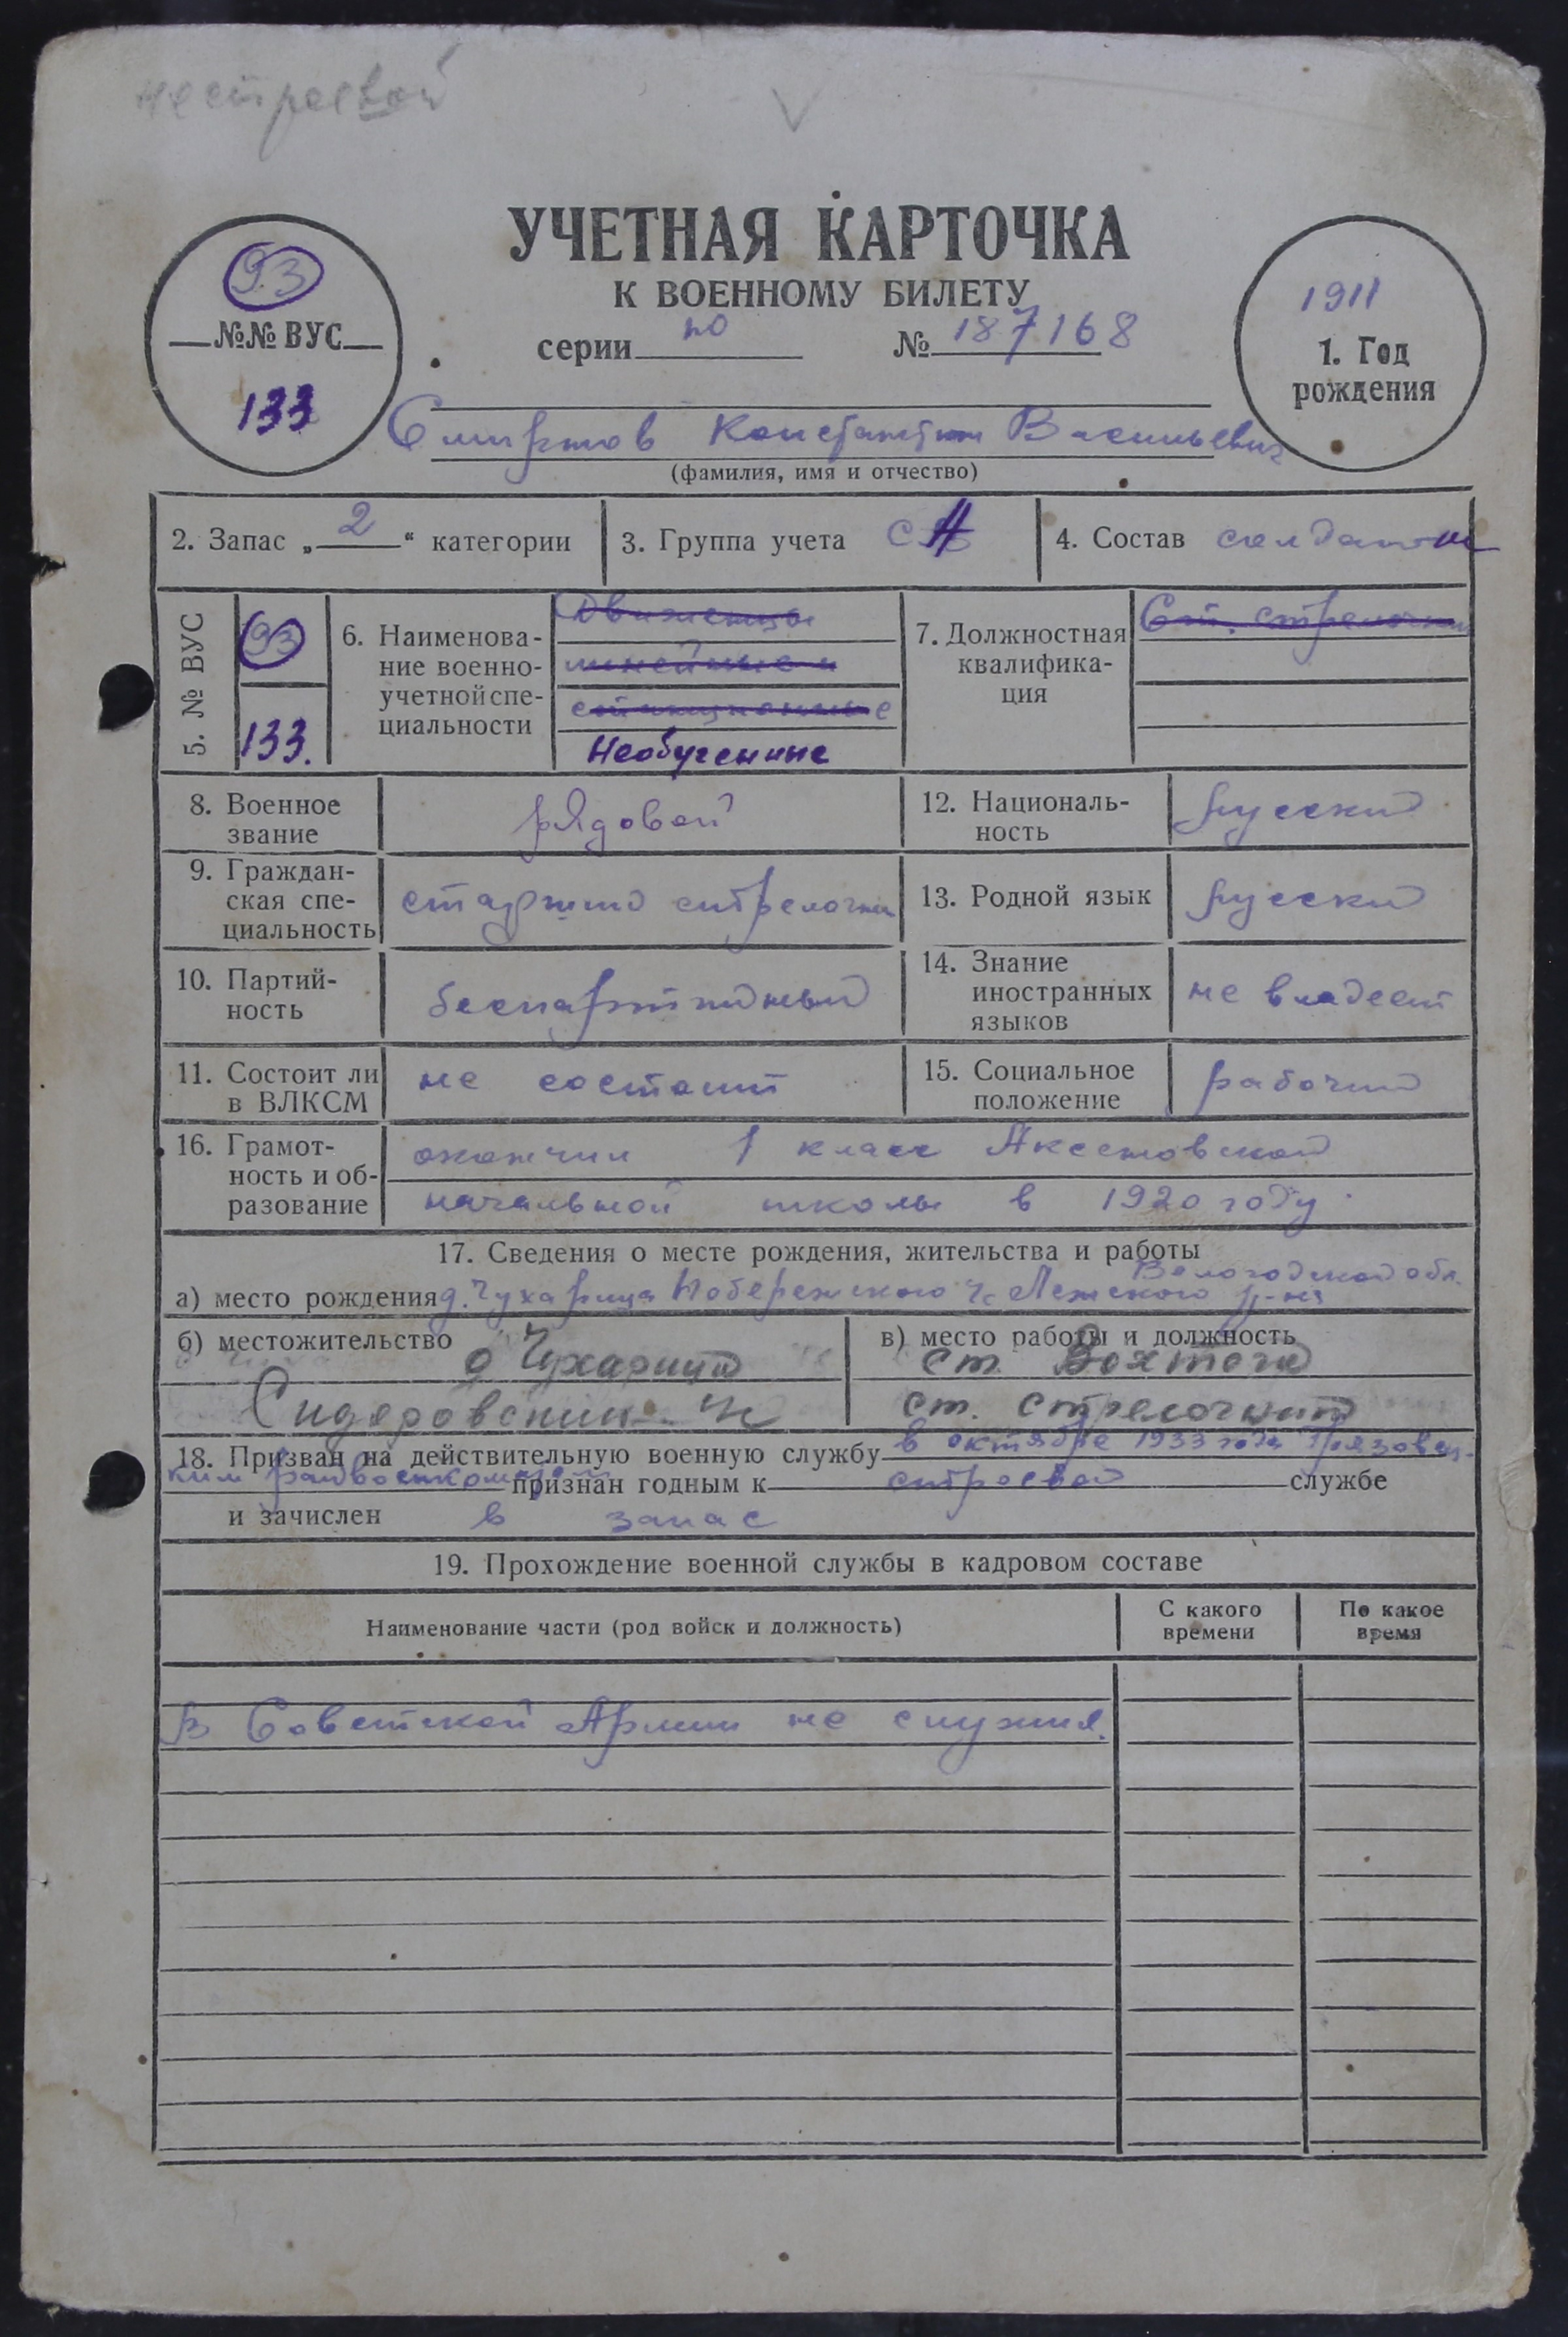 нестроевой
УЧЕТНАЯ КАРТОЧКА
К ВОЕННОМУ БИЛЕТУ
серии № 187168
93
№№ ВУС
133
1911
1. Год
рождения
Смирнов Константин Васильевич
(фамилия, имя и отчество)
2. Запас „ 2 “ категории
3. Группа учета СА
4. Состав солдаты
5. № ВУС
93
133.
6. Наименова-
ние военно-
учетной спе-
циальности
Движенцы
линейные и
станционные
Необученные
7. Должностная
квалифика-
ция
Ст. стрелочник
8. Военное
звание
рядовой
12. Националь-
ность
русский
9. Граждан-
ская спе-
циальность
старший стрелочник
13. Родной язык
русский
10. Партий-
ность
беспартийный
14. Знание
иностранных
языков
не владеет
11. Состоит ли
в ВЛКСМ
не состоит
15. Социальное
положение
рабочий
16. Грамот-
ность и об-
разование
окончил 1 класс Аксеновской
начальной школы в 1920 году.
17. Сведения о месте рождения, жительства и работы
Вологодской обл.
а) место рождения д. Чухарица Лежского р-на
б) местожительство
д Чухарица
Сидоровский
в) место работы и должность
ст. Вохтога
ст. стрелочник
18. Призван на действительную военную службу в октябре 1933 года Грязовец-
ким райвоенкоматом признан годным к строевой службе
и зачислен в запас
19. Прохождение военной службы в кадровом составе
Наименование части (род войск и должность)
С какого
времени
По какое
время
В Советской Армии не служил.